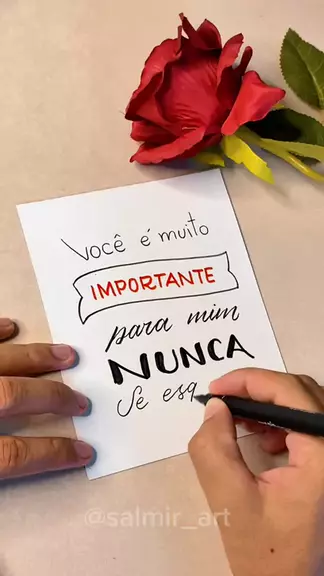 Você é muito
IMPORTANTE
para mim
NUNCA
Se esq
@salmir_art